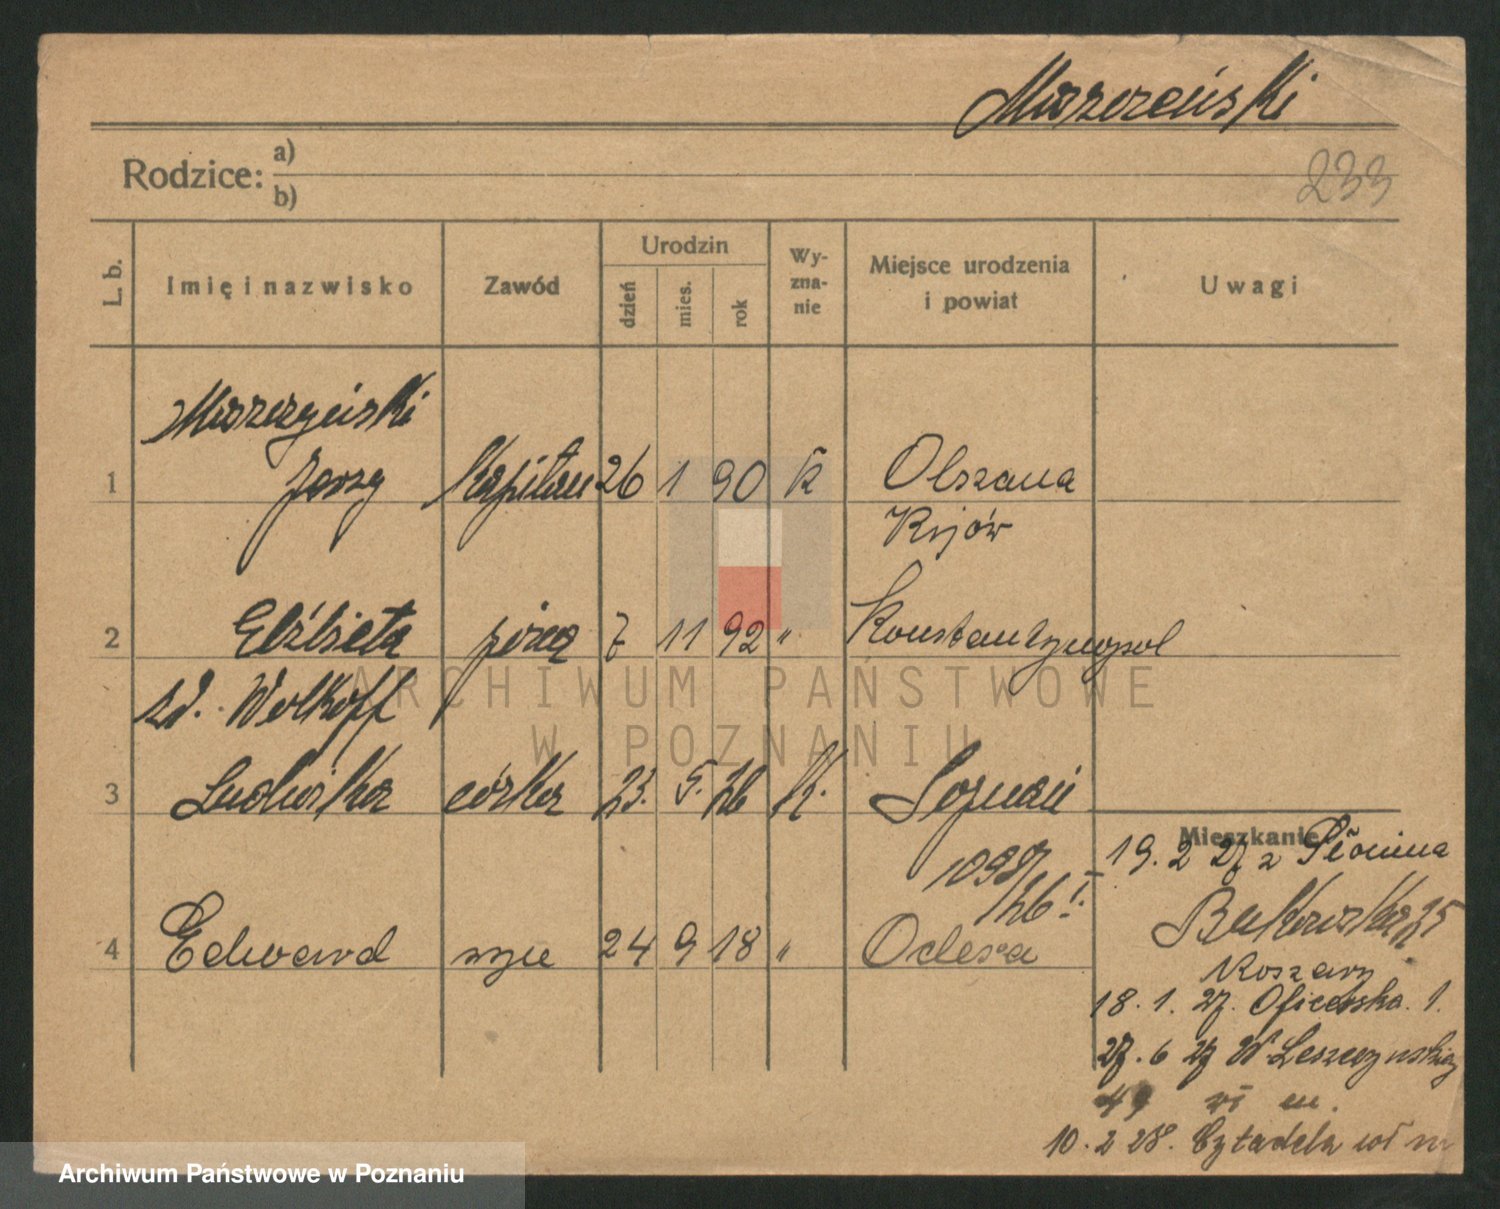 Mszczeński
233
Rodzice: a)
b)
L. b. Imię i nazwisko Zawód Urodzin dzień mies. rok Wy-zna-nie Miejsce urodzenia i powiat Uwagi
Mszczyński
1 Jerzy Kapitan 26 1 90 K Olszana
Kijów
2 Elżbieta żona 7 11 92 " Konstantynopol
zd. Wolkoff
3 Ludwika córka 23. 5. 26 K. Poznań
1097/26 I.
4 Edward syn 24 9 18 " Odesa
Mieszkanie
19. 2 27 z Słonima
Bukowska 25
Koszary
18. 1. 27. Oficerska 1.
27. 6 27 W. Leszczyńskiej
49 wł m.
10. 2 28. Cytadela wł m
ARCHIWUM PAŃSTWOWE
W POZNANIU
Archiwum Państwowe w Poznaniu